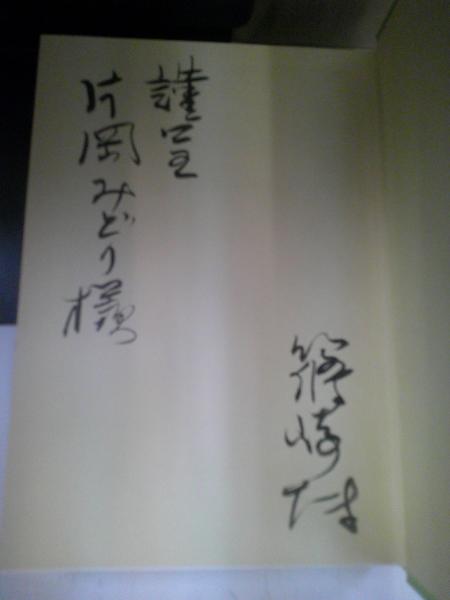 謹呈
片岡みどり様
篠崎